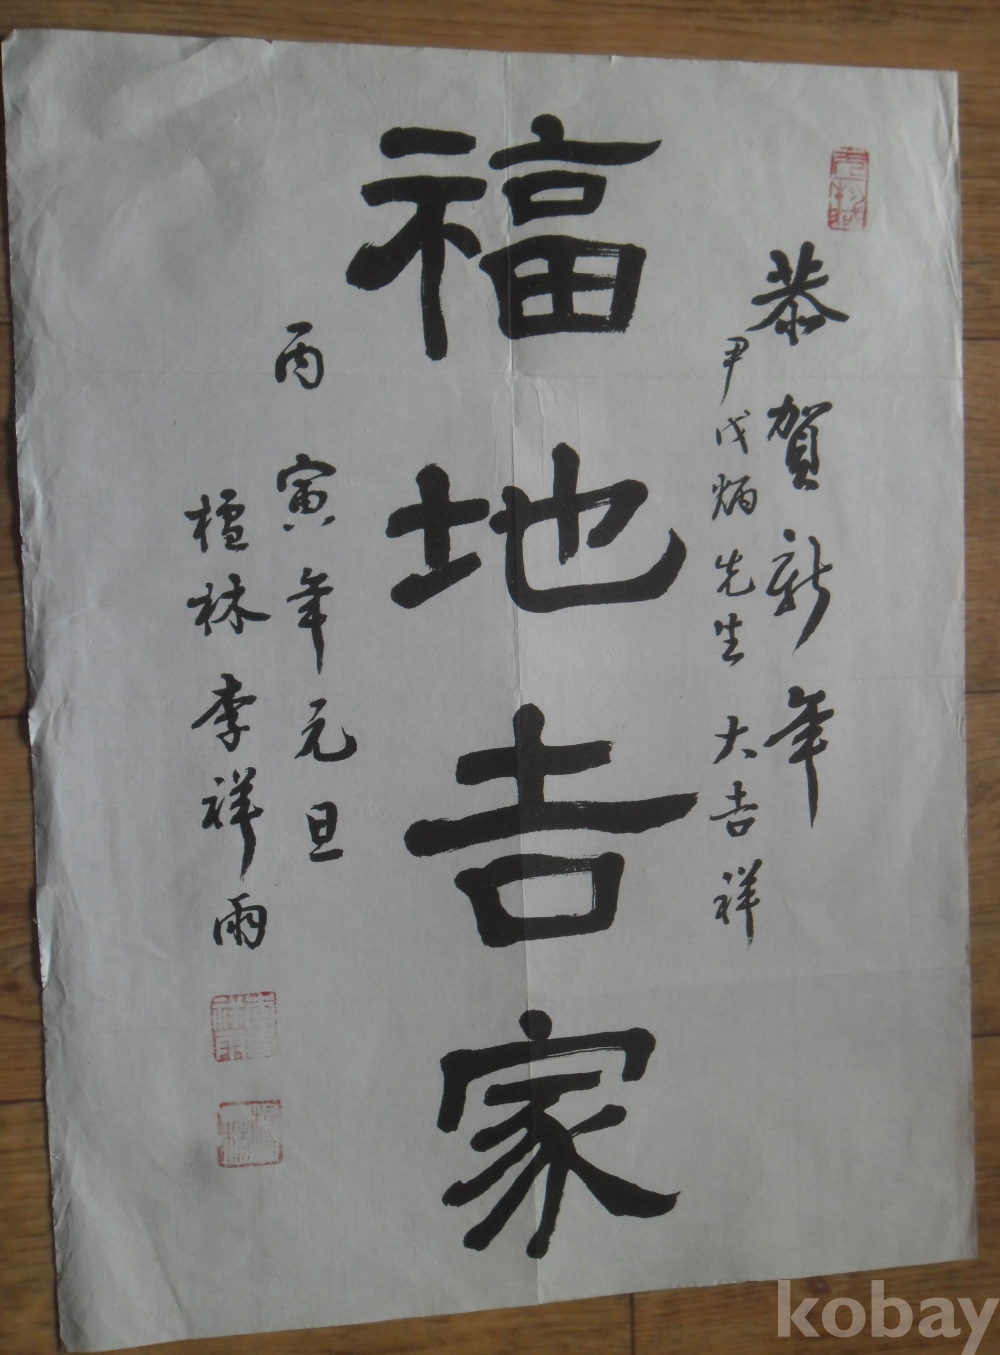 恭賀新年
尹戊炳先生 大吉祥
福地吉家
丙寅年元旦
檀林 李祥雨
kobay